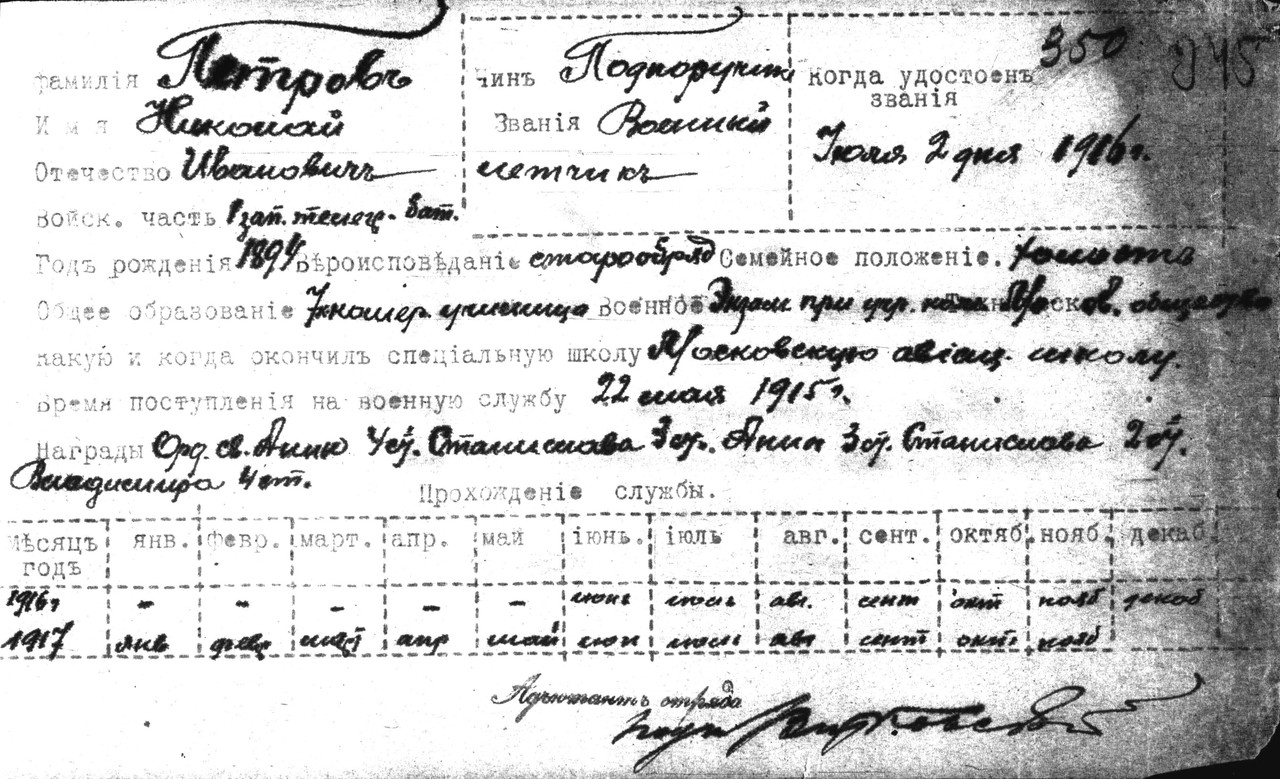 350 245
фамилія Петровъ
Имя Николай
Отечество Ивановичъ
Войск. часть 1 зап. телегр. бат.
Чинъ Подпоручик
Званія Военный
летчикъ
Когда удостоенъ
званія
Іюля 2 дня 1916 г.
Годъ рожденія 1894 Вѣроисповѣданіе старообряд Семейное положеніе. холоста
Общее образованіе училища Военное Экзам при Москов. общество
какую и когда окончилъ спеціальную школу Московскую авіац. школу.
Время поступленія на военную службу 22 мая 1915 г.
Награды Орд. св. Анны 4 ст. Станислава 3 ст. Анны 3 ст. Станислава 2 ст.
Владимира 4 ст.
Прохожденіе службы.
мѣсяцъ янв. февр. март. апр. май іюнь. іюль авг. сент. октяб. нояб. декаб.
годъ
1916 г - - - - - июнь июль авг. сент окт нояб декаб
1917 янв февр март апр май июн июль авг сент окт. нояб
Адъютантъ отряда